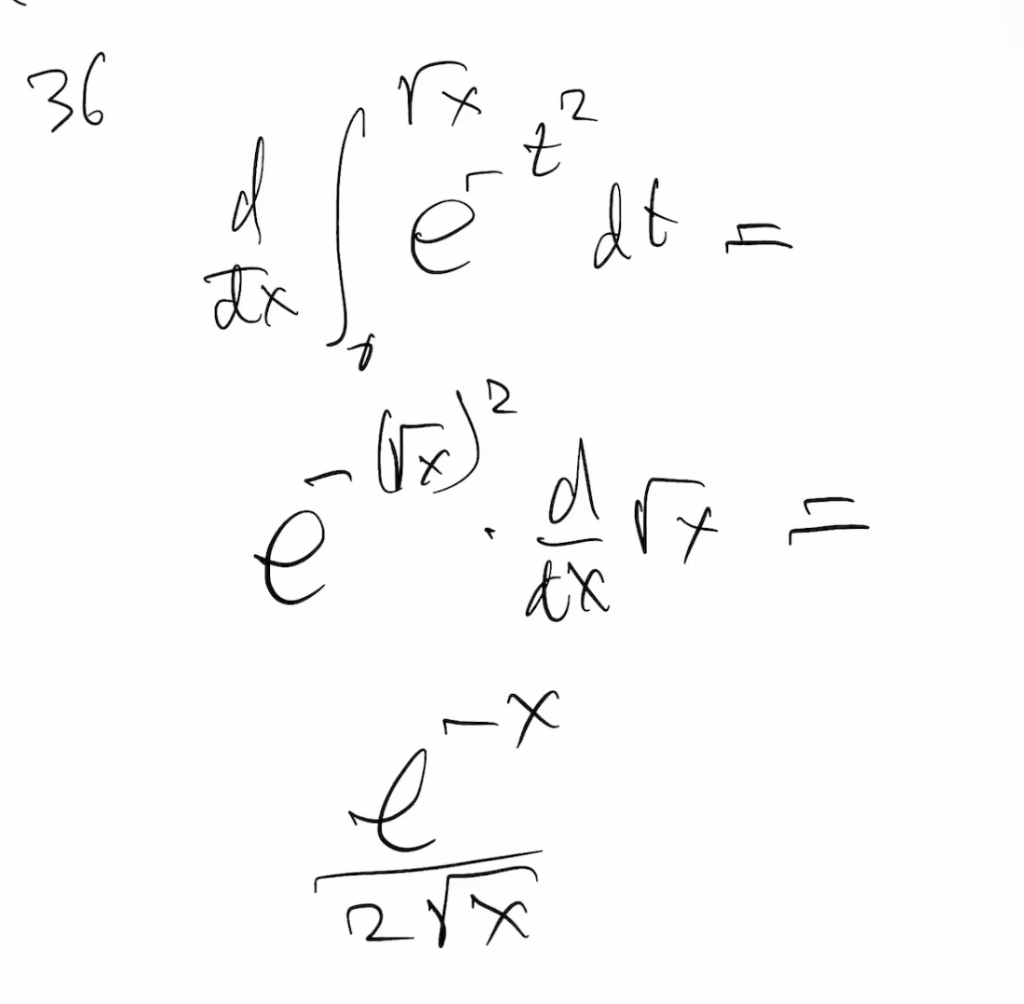 36
d/dx ∫₀^√x e^-t² dt =
e^-(√x)² · d/dx √x =
e^-x / 2√x